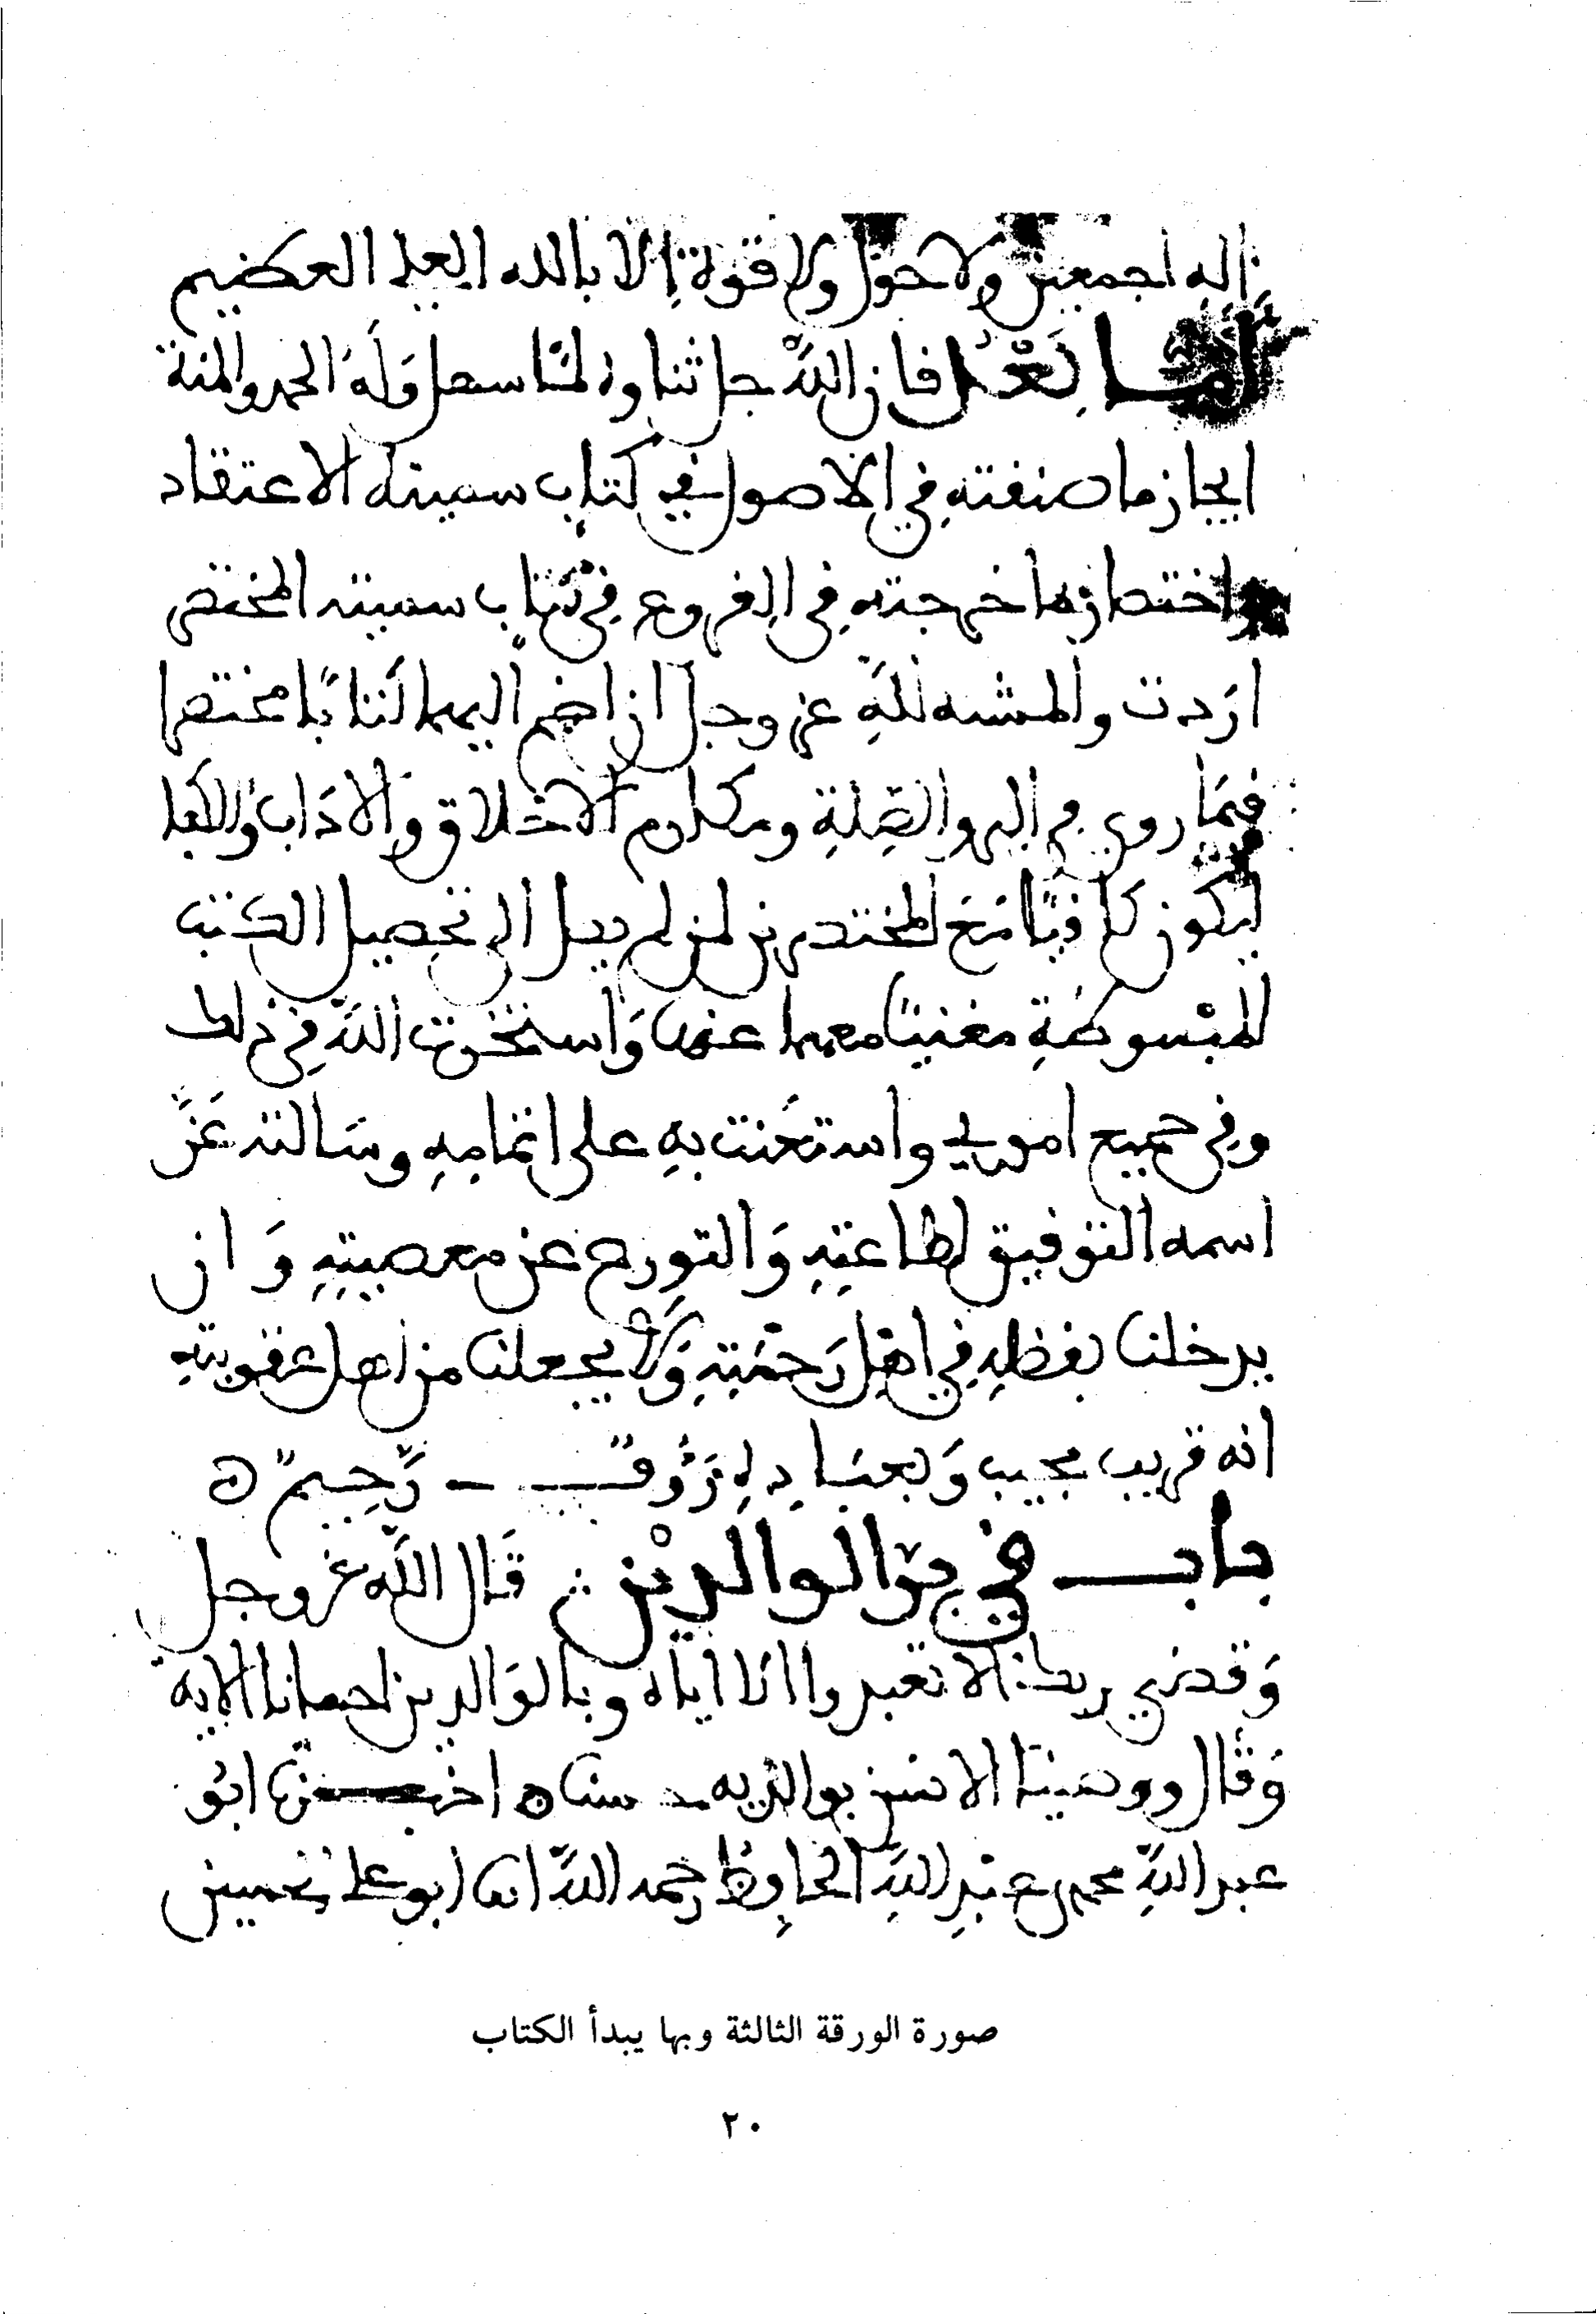 واله اجمعين ولا حول ولا قوة الا بالله العلي العظيم
اما بَعْدُ فان اللهَ جل ثناوه لما سهل وَلَهُ الحمد والمنة
ايجاز ما صنفته في الاصول في كتاب سميته الاعتقاد
واختصار ما اخرجته في الفروع في كتاب سميته المختصر
ارَدت والمشيه للهِ عز وجل ان اضم اليهما كتابًا مختصرا
فيمَا روي في البر والصِّلةِ ومكارم الاخلاق وَالادَاب والكفا
ليكون كافيًا مَعَ المختصرين لمن لم يصل الى تحصيل الكتب
المبْسوطَةِ مغنيًا معهما عنها وَاستخرت اللهَ في ذلك
وفي جميع اموري واستعَنت بهِ على اتمامِهِ وسَالته عَزَّ
اسمه التوفيق لطاعتِهِ وَالتورع عن معصيتِهِ وَان
يدخلنا بفضلِهِ في اهلِ رَحمْتِهِ وَلا يجعلنا من اهل عقوبتِهِ
انه قريب مجيب وَبعبَادِهِ رَؤُوفٌ رَّحِيمٌ ه
باب في برّ الوالديْن قَال اللهُ عز وجل
وَقضى ربك الا تعبدوا الا اياه وبالوَالدين احسانا الايه
وَقَال ووصينا الانسن بوالديه حسنا ه اخبرنا ابُو
عبد اللهِ محمد بن عبْدِ اللهِ الحافِظُ رحمه اللهُ انا ابو علي الحسين
صورة الورقة الثالثة وبها يبدأ الكتاب
٢٠